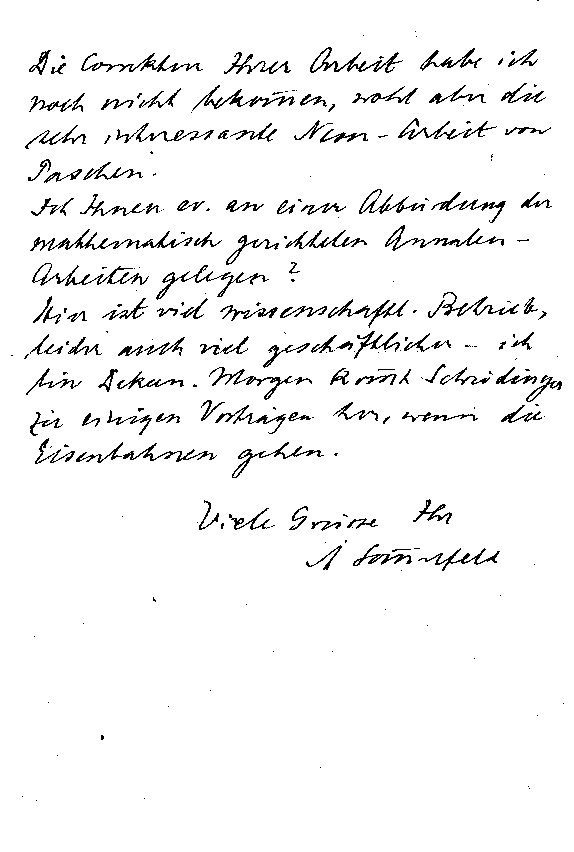 Die Correktur Ihrer Arbeit habe ich
noch nicht bekom̄en, wohl aber die
sehr interessante Neon-Arbeit von
Paschen.
Ist Ihnen ev. an einer Abbildung der
mathematisch gerichteten Annalen-
Arbeiten gelegen?
Hier ist viel wissenschaftl. Betrieb,
leider auch viel geschäftlicher – ich
bin Dekan. Morgen kom̄t Schrödinger
zu einigen Vorträgen her, wenn die
Eisenbahnen gehen.
Viele Grüsse Ihr
A Som̄erfeld